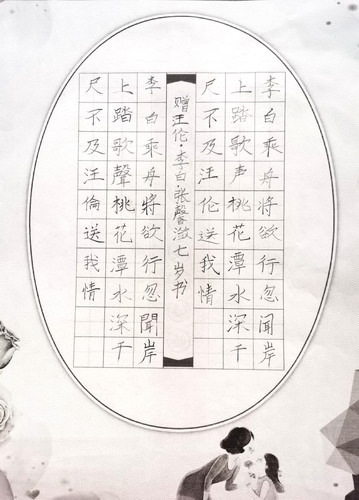 李白乘舟将欲行忽闻岸
上踏歌声桃花潭水深千
尺不及汪伦送我情
赠汪伦·李白·张馨滋七岁书
李白乘舟將欲行忽聞岸
上踏歌聲桃花潭水深千
尺不及汪倫送我情